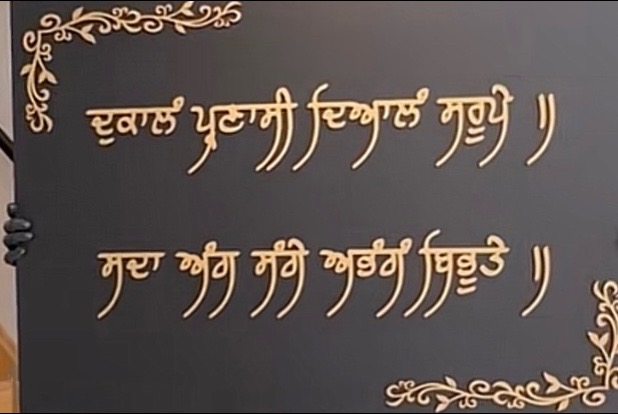 ਦੁਕਾਲੰ ਪ੍ਰਣਾਸੀ ਦਿਆਲੰ ਸਰੂਪੇ ॥
ਸਦਾ ਅੰਗ ਸੰਗੇ ਅਭੰਗੰ ਬਿਭੂਤੇ ॥